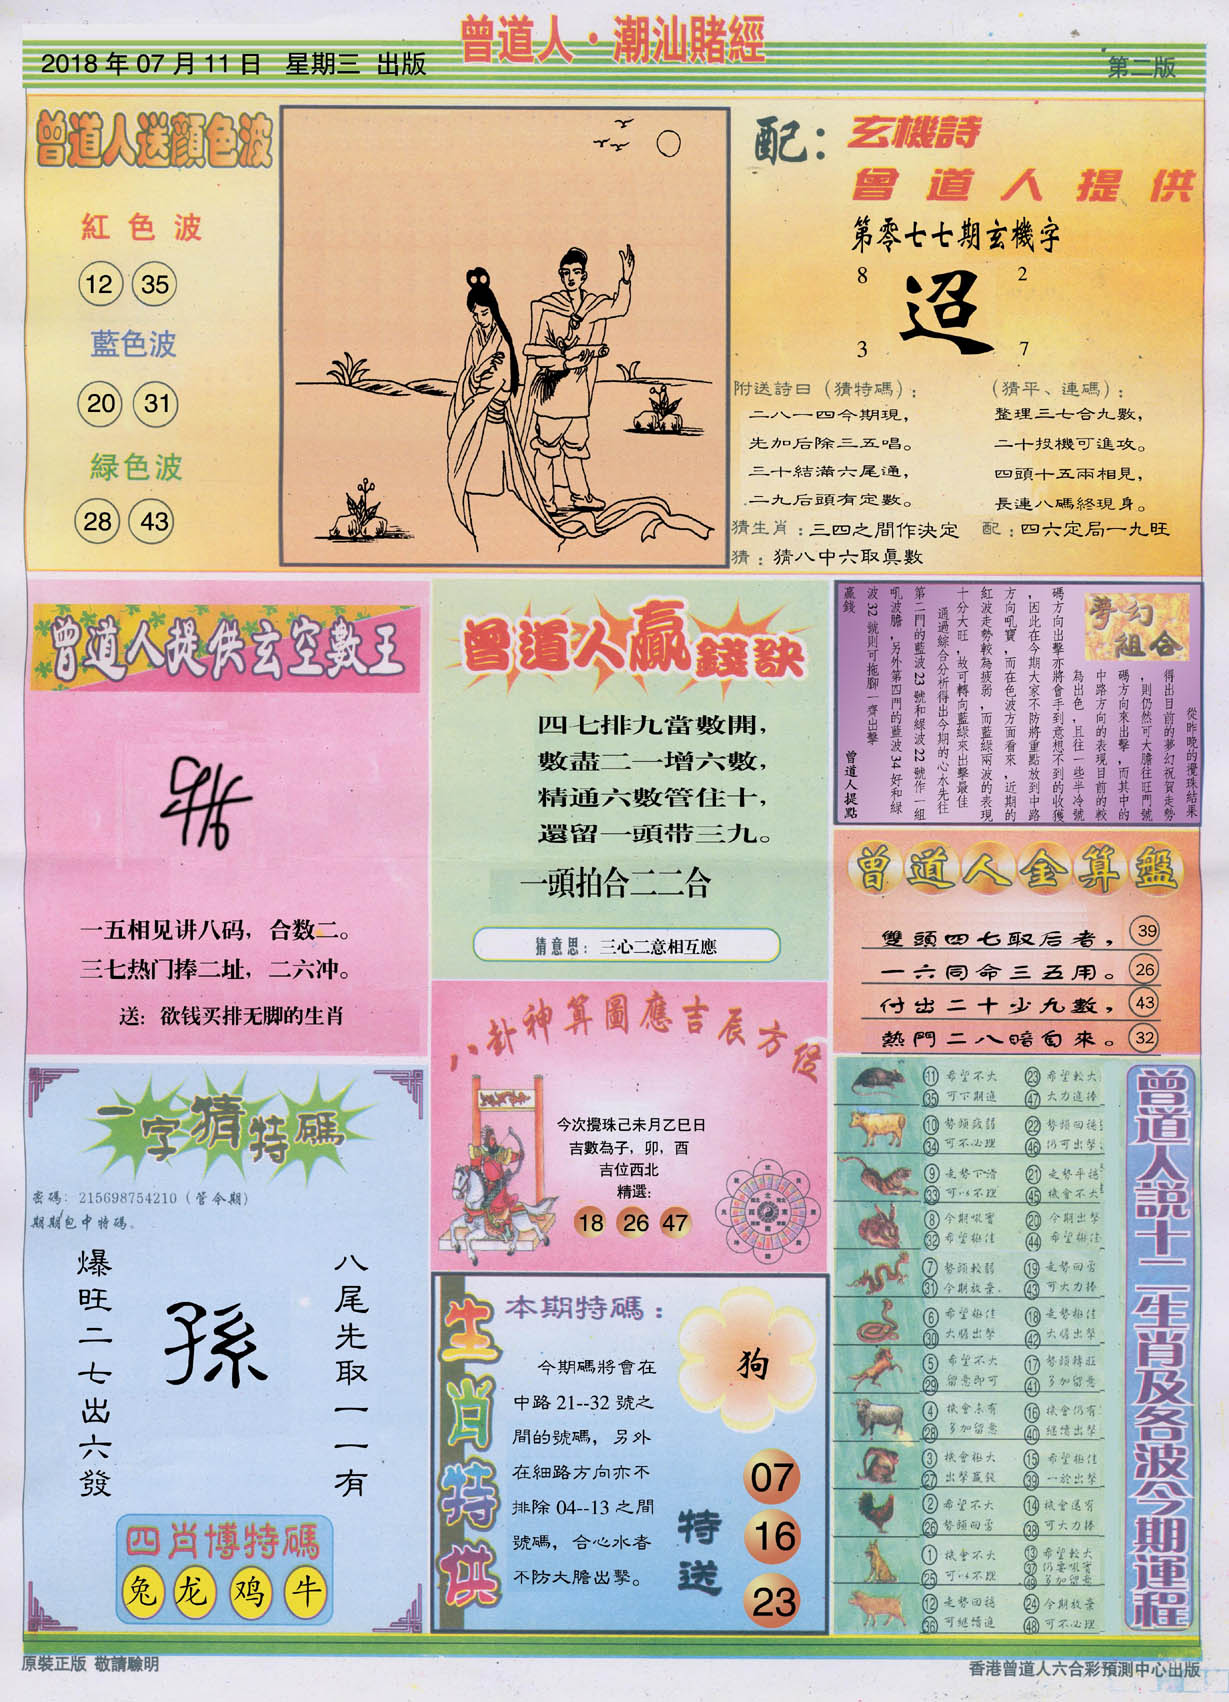 曾道人·潮汕賭經
2018年07月11日 星期三 出版
第二版
曾道人送顔色波
紅色波
12 35
藍色波
20 31
緑色波
28 43
配：玄機詩
曾道人提供
第零七七期玄機字
8 2
迢
3 7
附送詩日（猜特碼）：
二八一四今期現，
先加后除三五唱。
三十結滿六尾通，
二九后頭有定數。
（猜平、連碼）：
整理三七合九數，
二十投機可進攻。
四頭十五兩相見，
長連八碼終現身。
猜生肖：三四之間作決定
配：四六定局一九旺
猜：猜八中六取眞數
曾道人提供玄空數王
一五相见讲八码，合数二。
三七热门捧二址，二六冲。
送：欲钱买排无脚的生肖
曾道人赢錢訣
四七排九當數開，
數盡二一增六數，
精通六數管住十，
還留一頭带三九。
一頭拍合二二合
猜意思：三心二意相互應
夢幻組合
從昨晚的攪珠結果
得出目前的夢幻祝賀走勢
，則仍然可大膽往旺門號
碼方向來出擊，而其中的
中路方向的表現目前的較
為出色，且往一些半冷號
碼方向出擊亦將會手到意想不到的收獲
，因此在今期大家不防將重點放到中路
方向吼寶，而在色波方面看來，近期的
紅波走勢較為疲弱，而藍綠兩波的表現
十分大旺，故可轉向藍綠來出擊最佳
通過綜合分析得出今期的心水先往
第二門的藍波23號和綠波22號作一組
吼波膽，另外第四門的藍波34好和綠
波32號則可拖腳一齊出擊
贏錢
曾道人提點
曾道人金算盤
雙頭四七取后者， 39
一六同命三五用。 26
付出二十少九數， 43
熱門二八暗自來。 32
一字猜特碼
密碼：215698754210（管今期）
期期包中特碼。
爆旺二七出六發
孫
八尾先取一一有
四肖博特碼
兔 龙 鸡 牛
八卦神算圖應吉辰方位
今次攪珠己未月乙巳日
吉數為子，卯，酉
吉位西北
精選：
18 26 47
生肖特供
本期特碼：
今期碼將會在
中路21--32號之
間的號碼，另外
在細路方向亦不
排除04--13之間
號碼，合心水者
不防大膽出擊。
狗
特送
07
16
23
曾道人説十二生肖及各波今期運程
11 希望不大 23 希望較大
35 可下期進 47 大力進捧
10 勢頭疲弱 22 勢頭回穩
34 可不必理 46 仍可出擊
9 走勢下滑 21 走勢平穩
33 可以不理 45 機會不大
8 今期吸寶 20 今期出擊
32 希望極佳 44 希望極佳
7 勢頭較弱 19 走勢回勇
31 今期放棄 43 可大力捧
6 希望極佳 18 走勢極佳
30 大膽出擊 42 大膽出擊
5 希望不大 17 勢頭轉旺
29 留意即可 41 多加留意
4 機會未有 16 機會仍有
28 多加留意 40 繼續出擊
3 機會極大 15 希望極佳
27 出擊贏錢 39 一於出擊
2 希望不大 14 機會還有
26 勢頭回勇 38 可大力捧
1 機會不大 13 希望較大
25 可以不理 37 仍要吸寶
49 多加留意
12 走勢回穩 24 今期放棄
36 可繼續進 48 可不必理
原裝正版 敬請驗明
香港曾道人六合彩預測中心出版